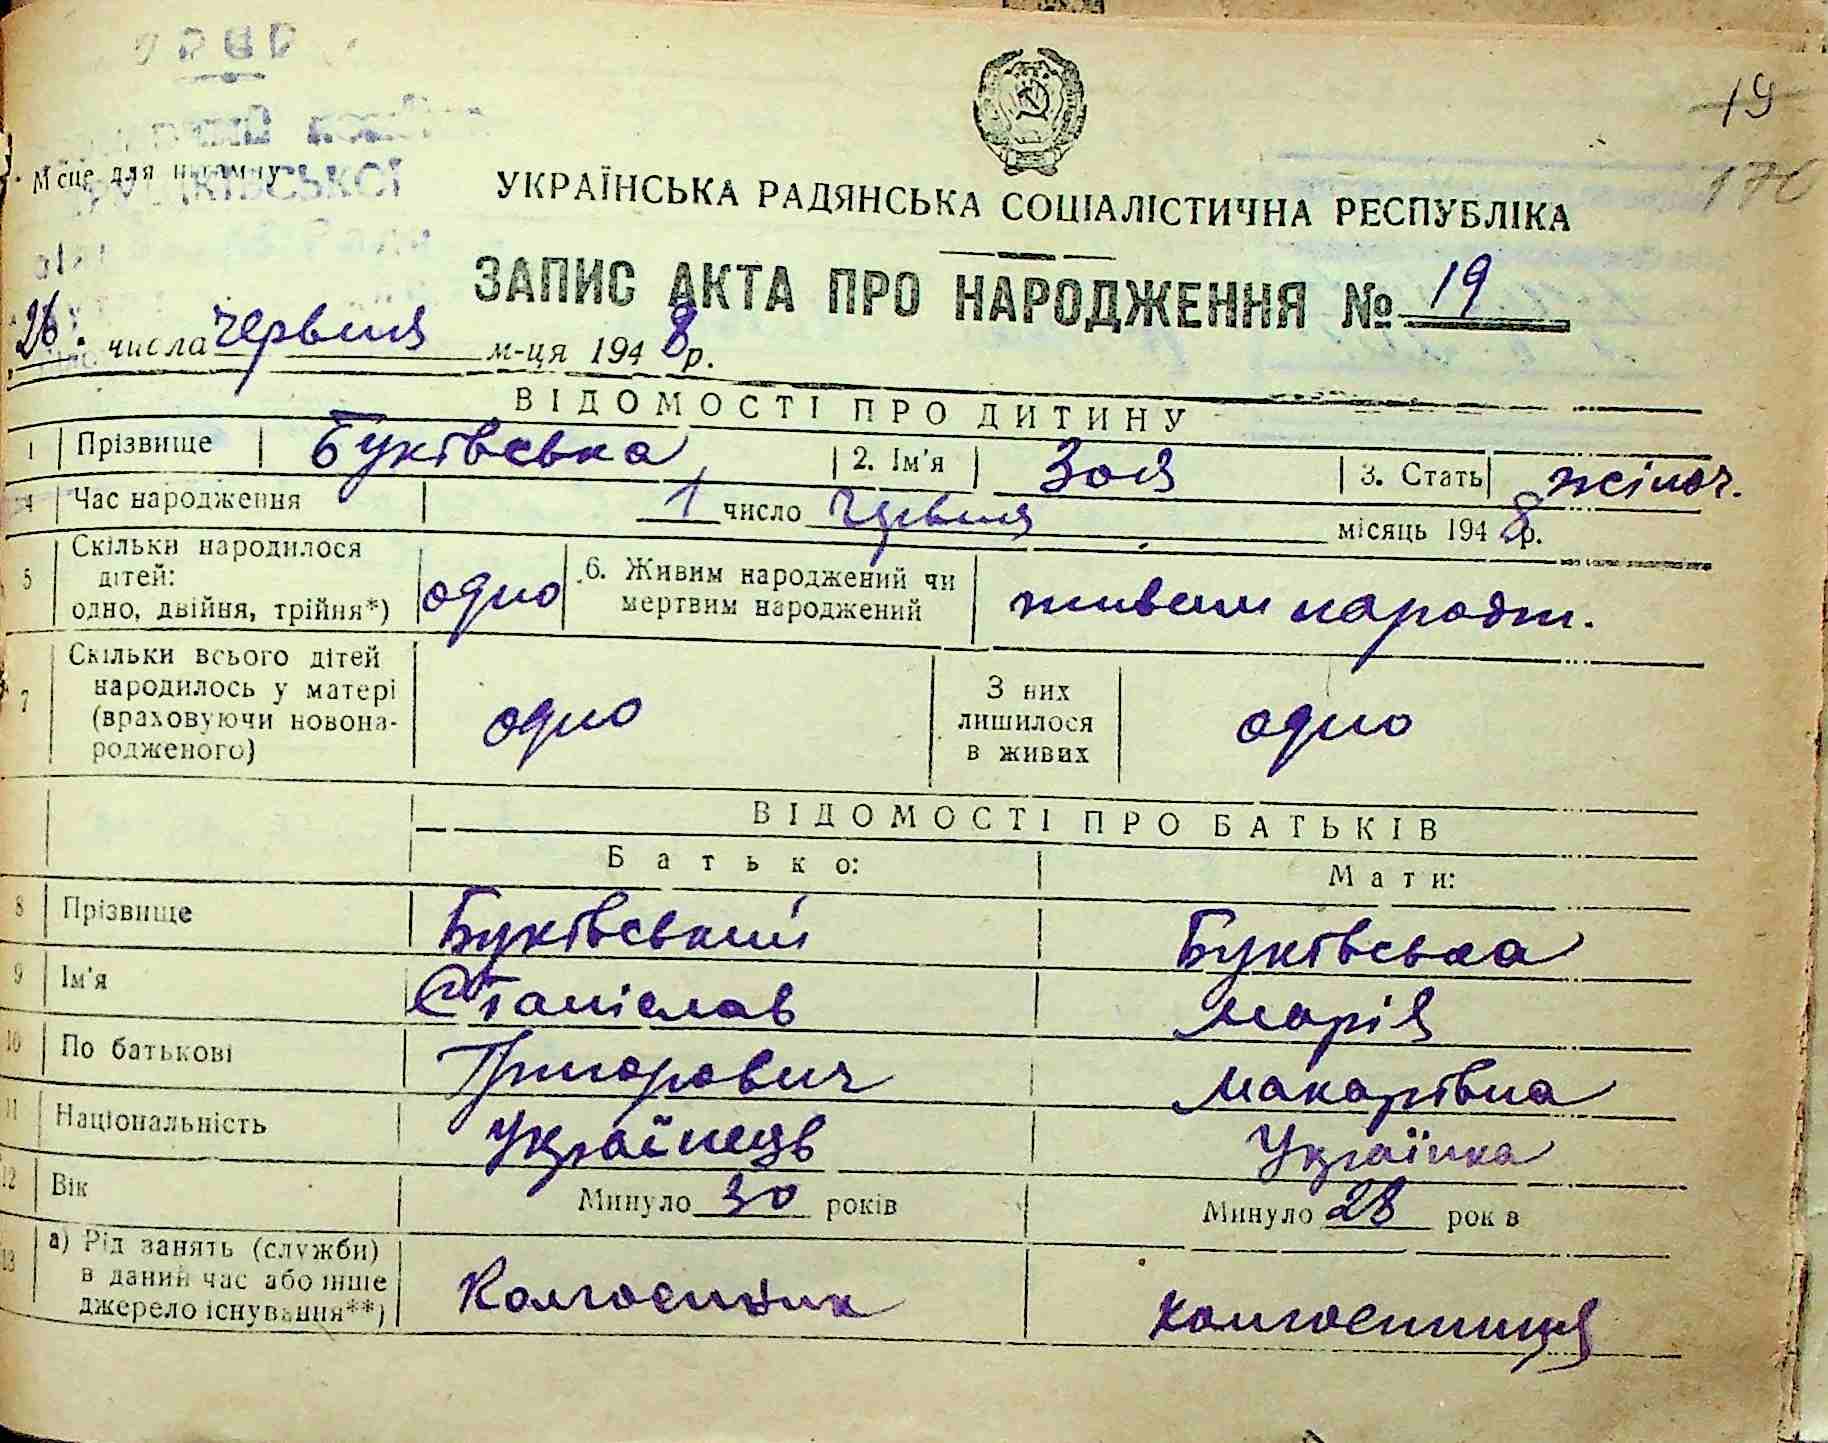 УРСР
19
170
Місце для штампу
УКРАЇНСЬКА РАДЯНСЬКА СОЦІАЛІСТИЧНА РЕСПУБЛІКА
ЗАПИС АКТА ПРО НАРОДЖЕННЯ № 19
26. числа червня м-ця 1948 р.
ВІДОМОСТІ ПРО ДИТИНУ
1 Прізвище Буківська 2. Ім'я Зоя 3. Стать жіноч.
4 Час народження 1 число червня місяць 1948 р.
5 Скільки народилося дітей: одно, двійня, трійня*) одно 6. Живим народжений чи мертвим народжений живим народж.
7 Скільки всього дітей народилось у матері (враховуючи новонародженого) одно З них лишилося в живих одно
ВІДОМОСТІ ПРО БАТЬКІВ
Батько: Мати:
8 Прізвище Буківський Буківська
9 Ім'я Станіслав Марія
10 По батькові Григорович Макарівна
11 Національність Українець Українка
12 Вік Минуло 30 років Минуло 28 рок в
13 а) Рід занять (служби) в даний час або інше джерело існування**) Колгоспник колгоспниця